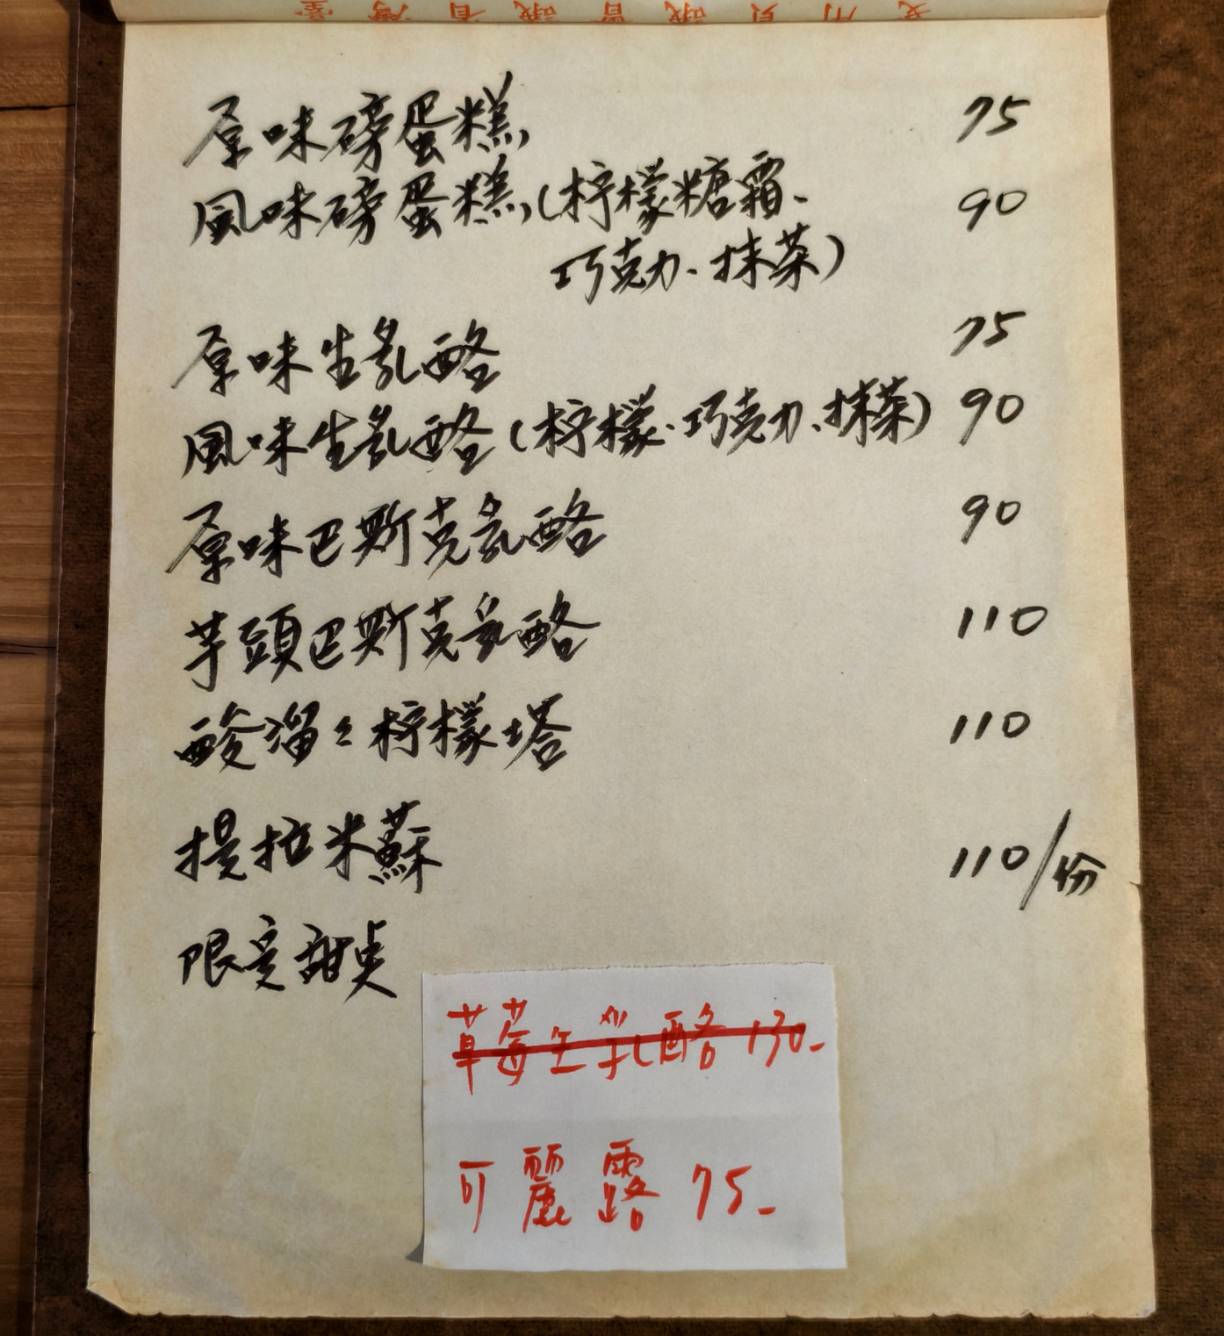 原味磅蛋糕 75
風味磅蛋糕(柠檬糖霜、 90
巧克力、抹茶)
原味生乳酪 75
風味生乳酪(柠檬、巧克力、抹茶) 90
原味巴斯克乳酪 90
芋頭巴斯克乳酪 110
酸溜々柠檬塔 110
提拉米蘇 110/份
限定甜点
草莓生乳酪 130-
可麗露 75-